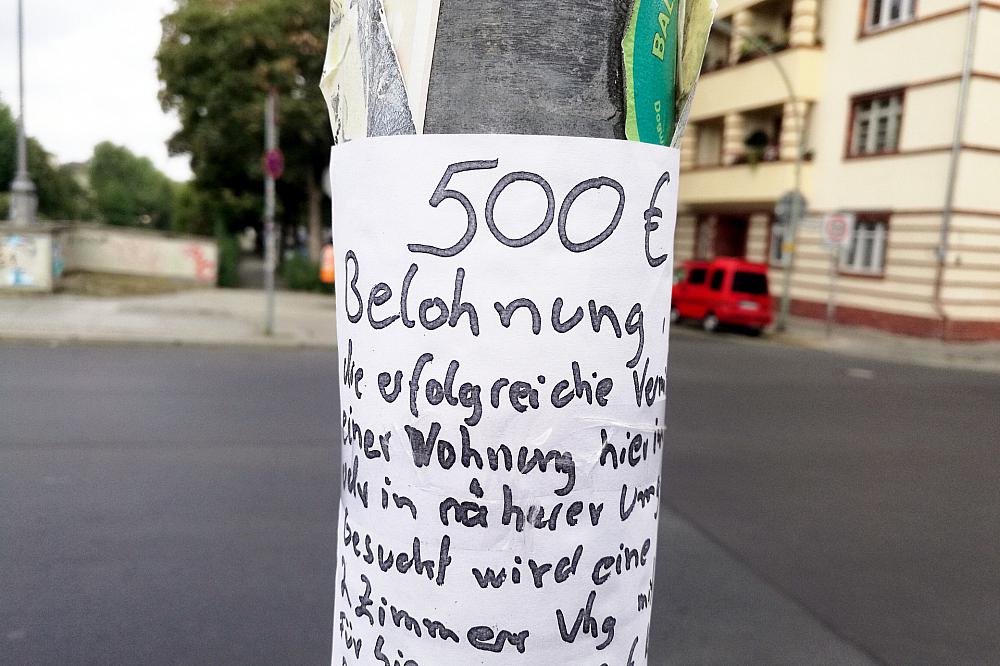 BAL
500 €
Belohnung
die erfolgreiche
einer Wohnung hier
oder in näherer
Gesucht wird eine
2 Zimmer Whg
für